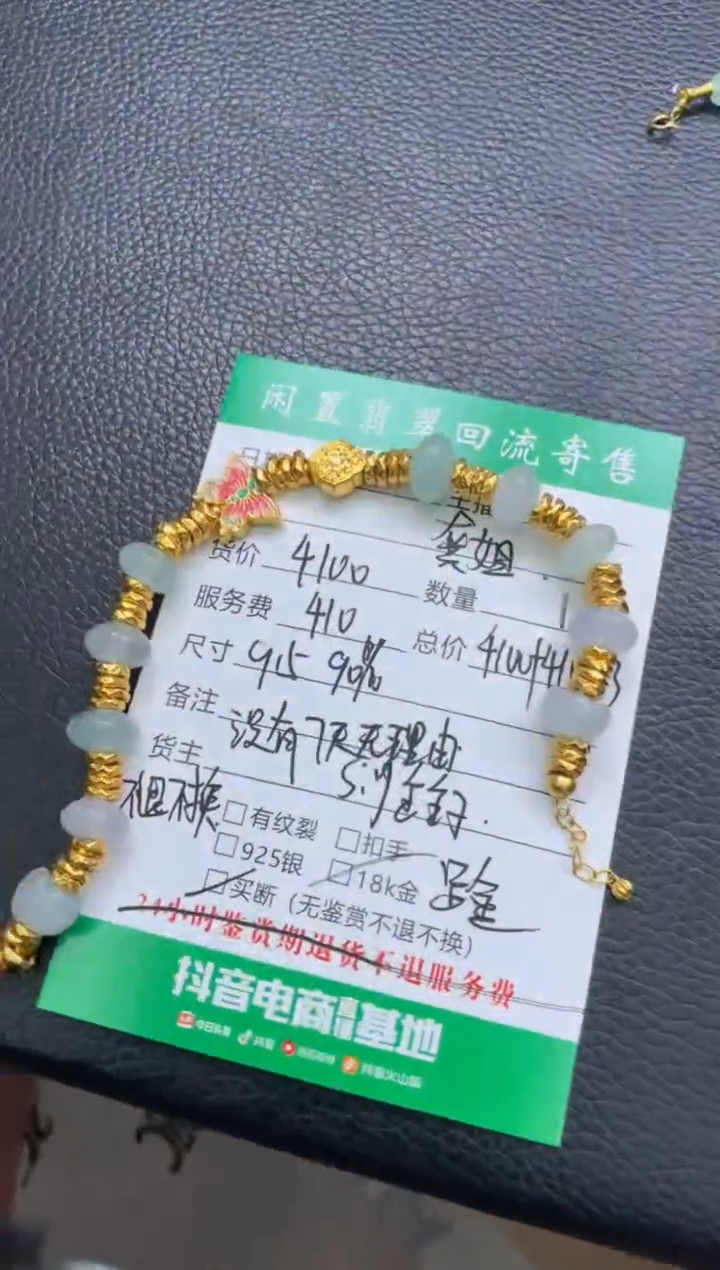 闲置翡翠回流寄售
货价 4100 数量 1
服务费 410 总价
尺寸
备注 没有7天无理由
货主
不退不换 □有纹裂 □扣手
□925银 □18k金 足金
□买断（无鉴赏不退不换）
24小时鉴赏期退货不退服务费
抖音电商直播基地
今日头条 抖音 西瓜视频 抖音火山版